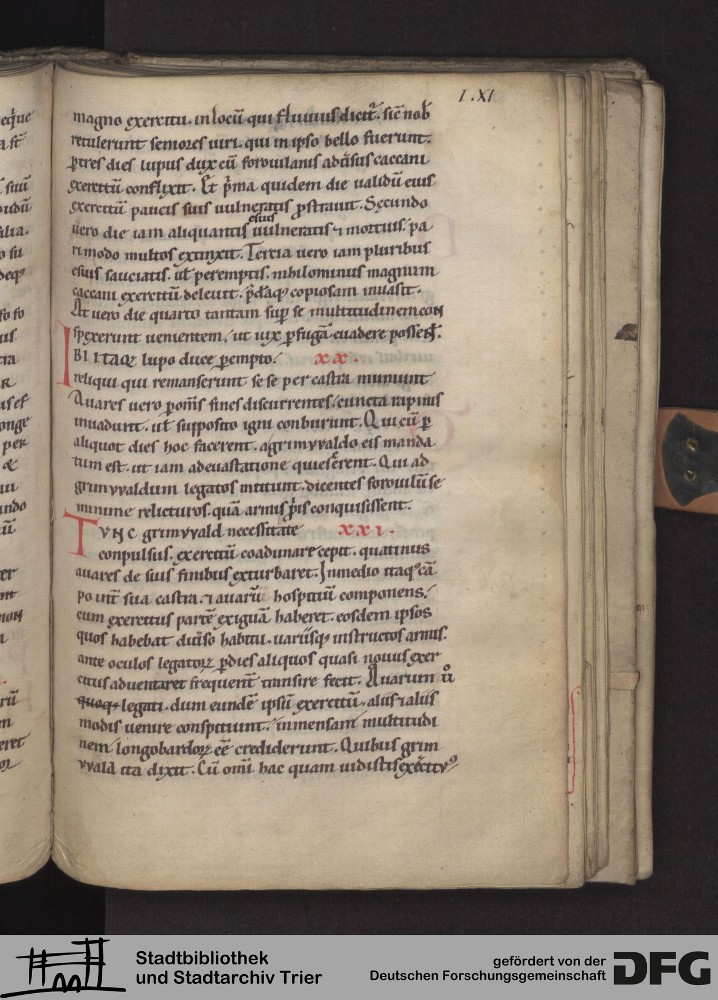 L.XI
magno exercitu. in locū qui fluuius dicit̄. sic nob̄
retulerunt seniores uiri. qui in ipso bello fuerunt.
ꝑ tres dies lupus dux cū foroiulanis aduīsus caccani
exercitū conflixit. Et p̄ma quidem die ualidū eius
exercitū paucis suis uulneratis ꝓstrauit. Secundo
uero die iam aliquantis esius uulneratis ⁊ mortuis. pa
ri modo multos extinxit. Tercia uero iam pluribus
esius sauciatis. ul̄ peremptis. nihilominus magnum
caccani exercitū deleuit. p̄daq; copiosam inuasit.
At uero die quarto tantam sup̄ se multitudinem con
spexerunt uenientem. ut uix ꝑ fugā euadere possent.
IBI ITAQ; lupo duce ꝑempto. xx.
reliqui qui remanserunt se se per castra muniunt
Auares uero ꝑ om̄s fines discurrentes. cuncta rapinis
inuadunt. ul̄ supposito igni conburunt. Qui cū ꝑ
aliquot dies hoc facerent. a grimvvaldo eis manda
tum est. ut iam a deuastatione quiescerent. Qui ad
grimvvaldum legatos mittunt. dicentes foroiulū se
minime relicturos. quā armis ꝓpis conquisissent.
TVNC grimvvald necessitate xxi.
conpulsus. exercitū coadunare cepit. quatinus
auares de suis finibus exturbaret. In medio itaq; cā
po int̄ sua castra. ⁊ auarū hospitiū componens.
cum exercitus partē exiguā haberet. eosdem ipsos
quos habebat diuīso habitu. uariisq; instructos armis.
ante oculos legatoꝝ ꝑ dies aliquos quasi nouus exer
citus aduentaret frequent̄ transire fecit. Auarum ū
quoq; legati. dum eundē ipsū exercitū. aliis ⁊ aliis
modis uenire conspiciunt. inmensam multitudi
nem longobardoꝝ eē crediderunt. Quibus grim
vvald ita dixit. Cū omi hac quam uidistis exercitꝰ
Stadtbibliothek
und Stadtarchiv Trier
gefördert von der
Deutschen Forschungsgemeinschaft
DFG